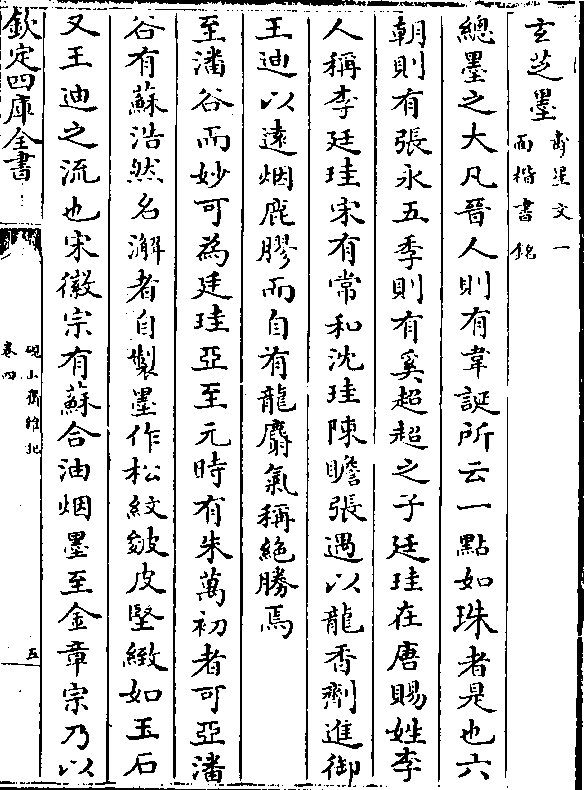 玄芝墨
奎星文一
而楷書銘
總墨之大凡晉人則有韋誕所云一點如珠者是也六
朝則有張永五季則有奚超超之子廷珪在唐賜姓李
人稱李廷珪宋有常和沈珪陳瞻張遇以龍香劑進御
王迪以遠烟鹿膠而自有龍麝氣稱絶勝焉
至潘谷而妙可為廷珪亞至元時有朱萬初者可亞潘
谷有蘇浩然名澥者自製墨作松紋皴皮堅緻如玉石
又王迪之流也宋徽宗有蘇合油烟墨至金章宗乃以
欽定四庫全書
硯山齋雜記
卷四
五